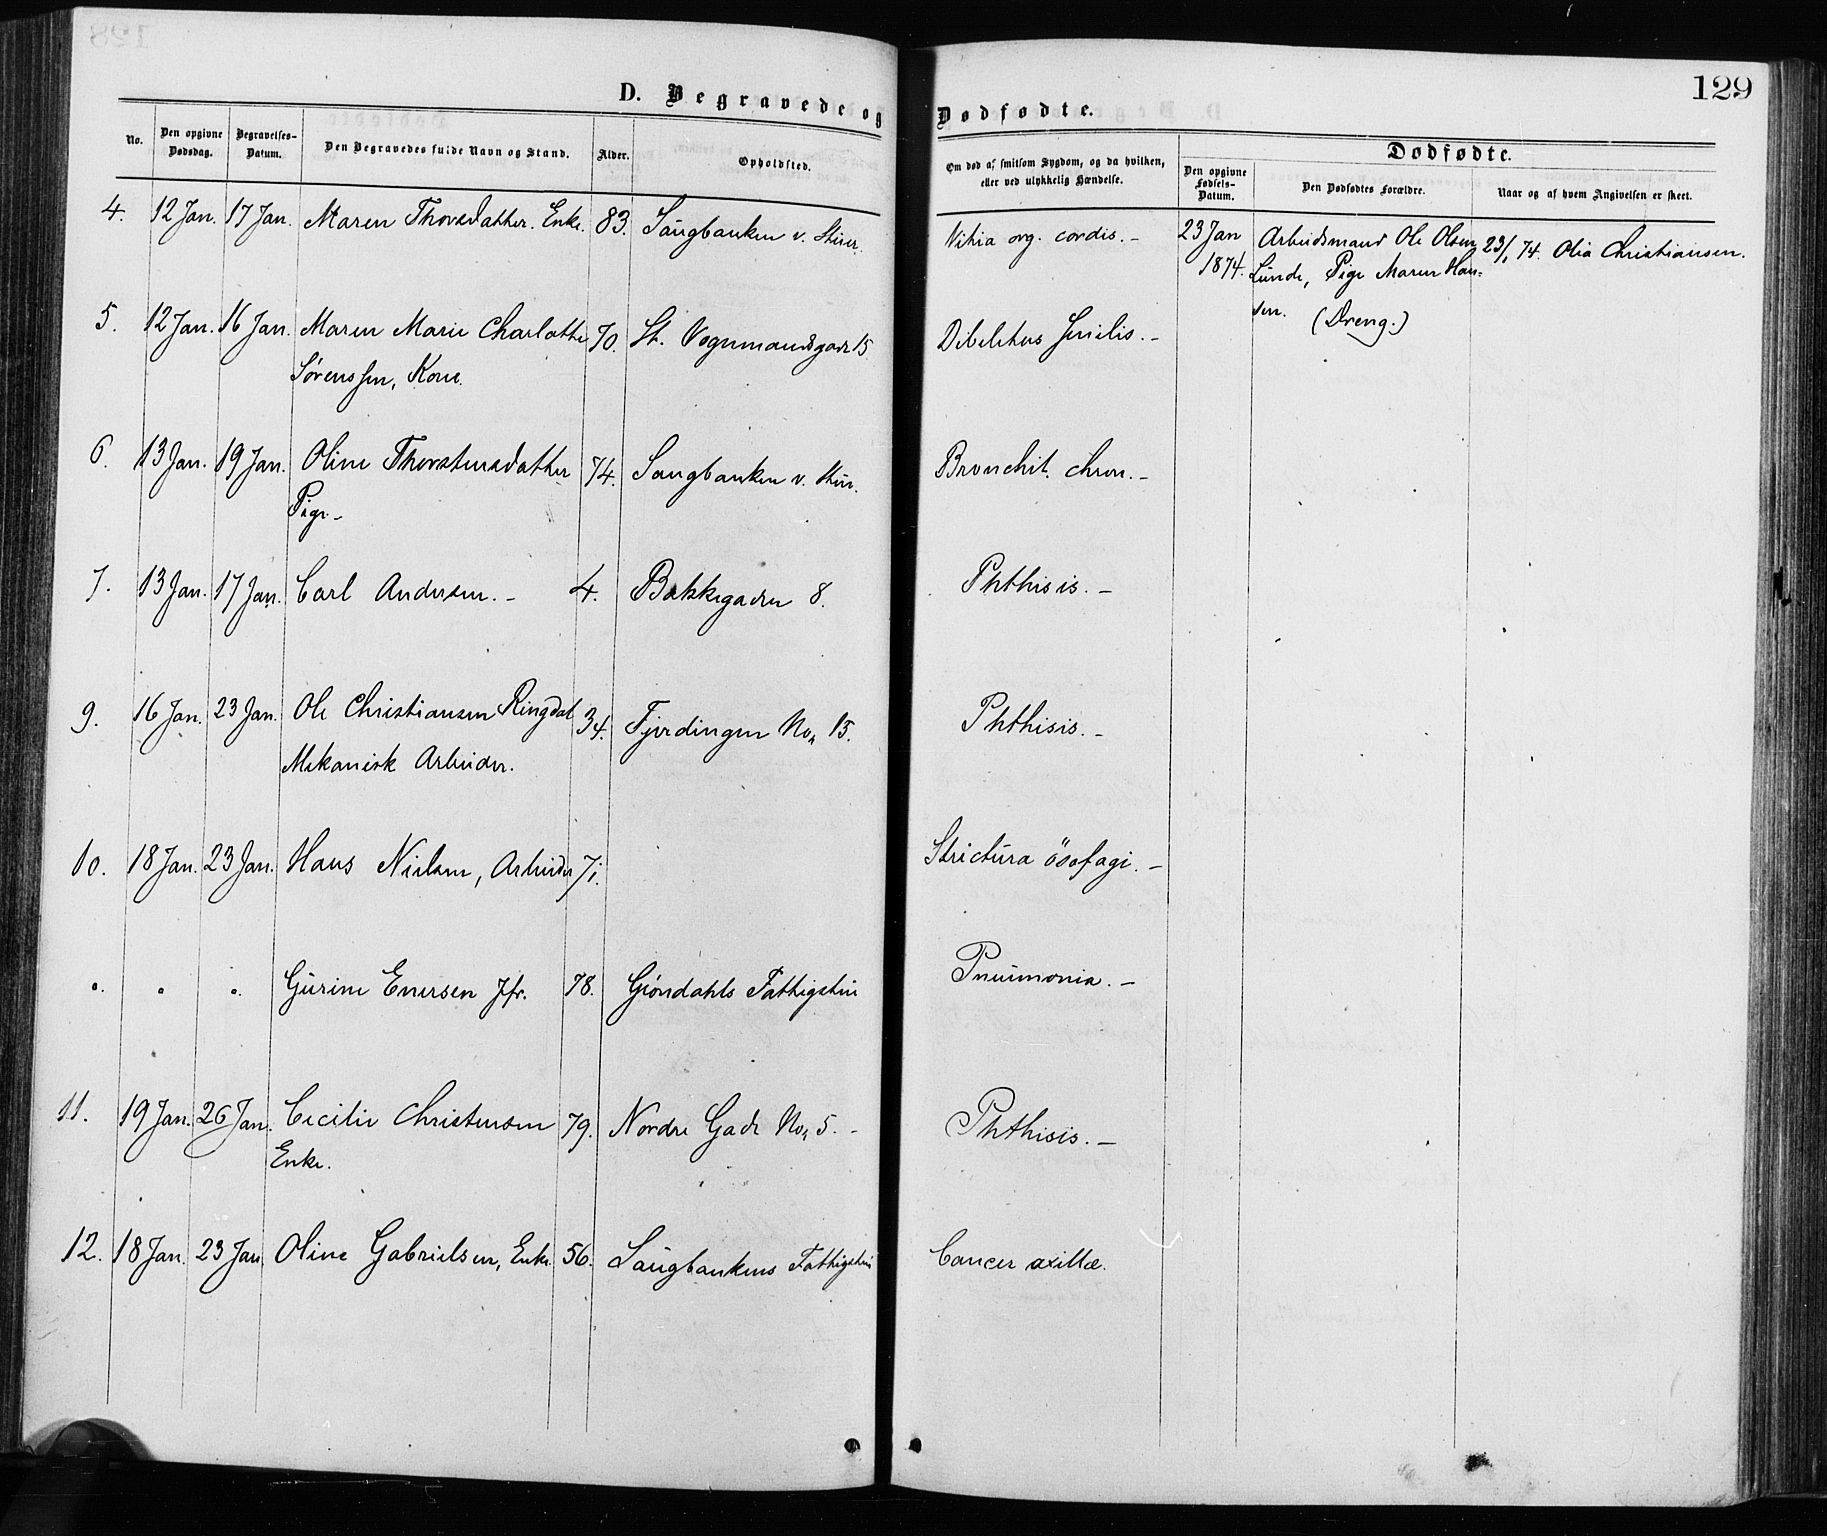 129
D. Begravede og Dødfødte.
No.
Den opgivne Dødsdag.
Begravelses-Datum.
Den Begravedes fulde Navn og Stand.
Alder.
Opholdsted.
Om død af smitsom Sygdom, og da hvilken, eller ved ulykkelig Hændelse.
Dødfødte.
Den opgivne Fødsels-Datum.
Den Dødfødtes Forældre.
Naar og af hvem Angivelsen er skeet.
4. 12 Jan. 17 Jan. Maren Thorsdatter. Enke. 83. Saugbanken v. Stien. Vitia org. cordis. –
23 Jan 1874. Arbeidsmand Ole Olsen 23/1 74. Olia Christiansen.
Lunde, Pige Maren Han-
sen. (Dreng.)
5. 12 Jan. 16 Jan. Maren Marie Charlotte 70. St. Vognmandsgade 15 Debilitas senilis. –
Sørenssen, Kone.
6. 13 Jan. 19 Jan. Oline Thorstensdatter 74. Saugbanken v. Stien. Bronchit. chron. –
Pige –
7. 13 Jan. 17 Jan. Carl Andersen. – 4. Bakkegaden 8. Phthisis. –
9. 16 Jan. 23 Jan. Ole Christiansen Ringdal 34. Fjerdingen No. 15. Phthisis. –
Mekanisk Arbeider.
10. 18 Jan. 23 Jan. Hans Nielsen, Arbeider 71. Strictura ösofagi. –
" " " Gurine Enersen Jfr. 78. Grøndahls Fattigstue Pneumonia. –
11. 19 Jan. 26 Jan. Cecilie Christensen 79. Nordre Gade No. 5. – Phthisis. –
Enke.
12. 18 Jan. 23 Jan Oline Gabrielsen, Enke 56. Saugbankens Fattigstue Cancer axillæ.